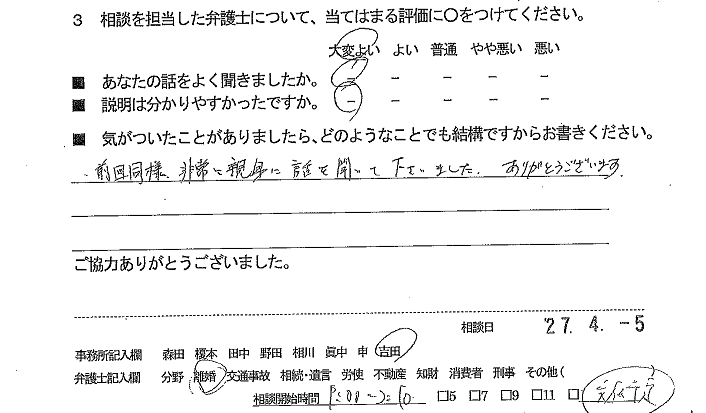 3 相談を担当した弁護士について、当てはまる評価に○をつけてください。
大変よい よい 普通 やや悪い 悪い
■ あなたの話をよく聞きましたか。 － － － － －
■ 説明は分かりやすかったですか。 － － － － －
■ 気がついたことがありましたら、どのようなことでも結構ですからお書きください。
前回同様、非常に親身に話を聞いて下さいました。ありがとうございます
ご協力ありがとうございました。
相談日 '27. 4. -5
事務所記入欄 森田 榎本 田中 野田 相川 眞中 申 吉田
弁護士記入欄 分野 離婚 交通事故 相続・遺言 労使 不動産 知財 消費者 刑事 その他(
相談開始時間 □5 □7 □9 □11 □